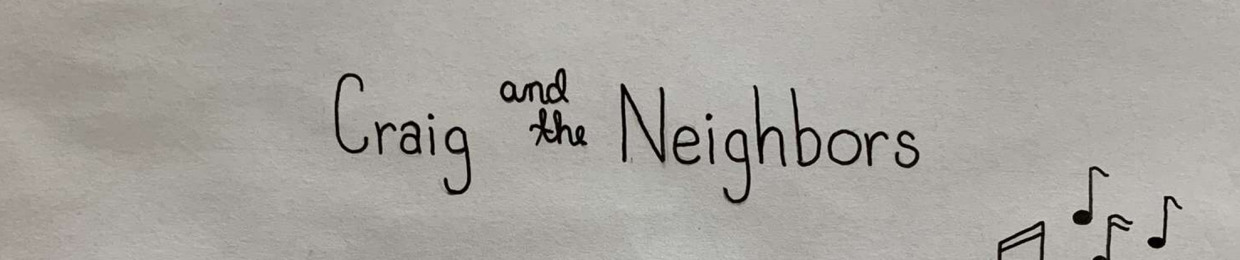 Craig and the Neighbors